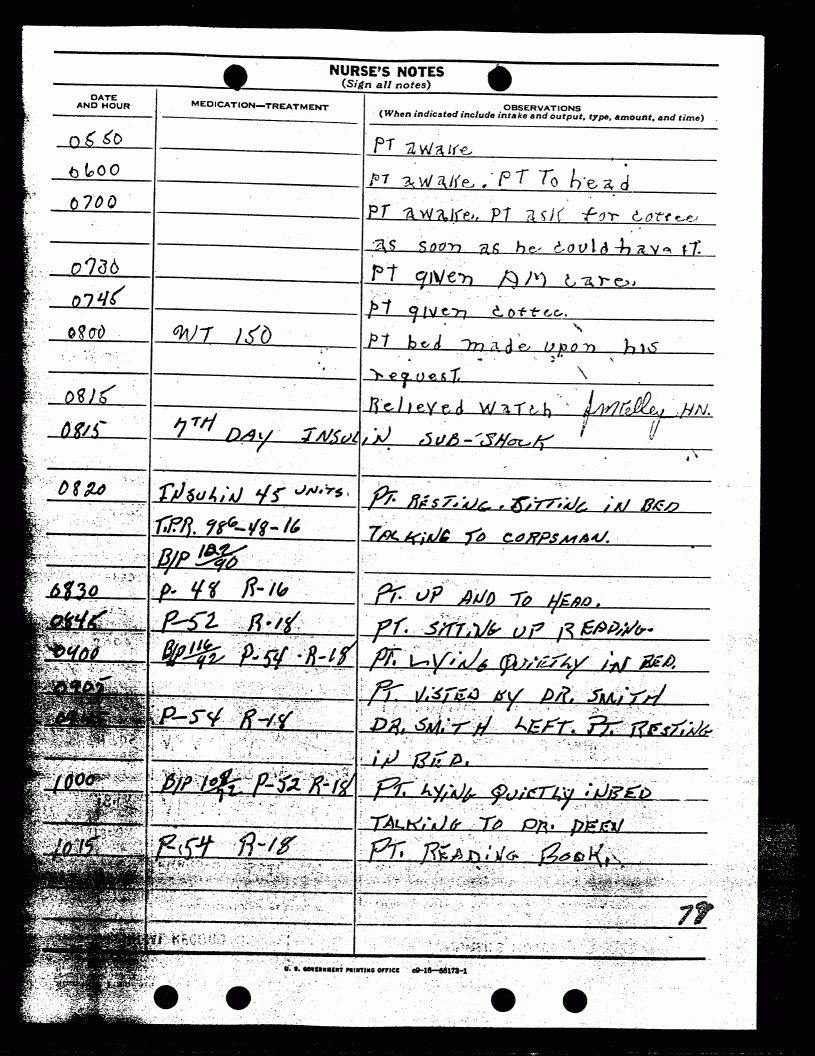 NURSE'S NOTES
(Sign all notes)
DATE AND HOUR MEDICATION—TREATMENT OBSERVATIONS
(When indicated include intake and output, type, amount, and time)
0550 PT awake
0600 PT awake. PT To head
0700 PT awake. PT ask for coffee
as soon as he could have it.
0730 PT given AM care.
0745 PT given coffee.
0800 WT 150 PT bed made upon his
request.
0815 Relieved Watch HN.
0815 7TH DAY INSULIN SUB-SHOCK
0820 INSULIN 45 UNITS. PT. RESTING. SITTING IN BED
T.P.R. 986-48-16 TALKING TO CORPSMAN.
B/P 122/90
0830 P- 48 R-16 PT. UP AND TO HEAD.
0845 P-52 R-18 PT. SITTING UP READING.
0900 B/P 116/92 P-54 - R-18 PT. LYING QUIETLY IN BED.
0905 PT VISTED BY DR. SMITH
P-54 R-18 DR. SMITH LEFT. PT. RESTING
IN BED.
1000 B/P 108/92 P-52 R-18 PT. LYING QUIETLY INBED
TALKING TO DR. DEEN
1015 P-54 R-18 PT. READING BOOK.
78
U. S. GOVERNMENT PRINTING OFFICE c9-16—55173-1